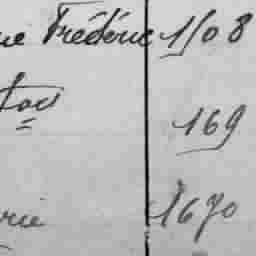 ue Frédéric 1508
169
rie 1670